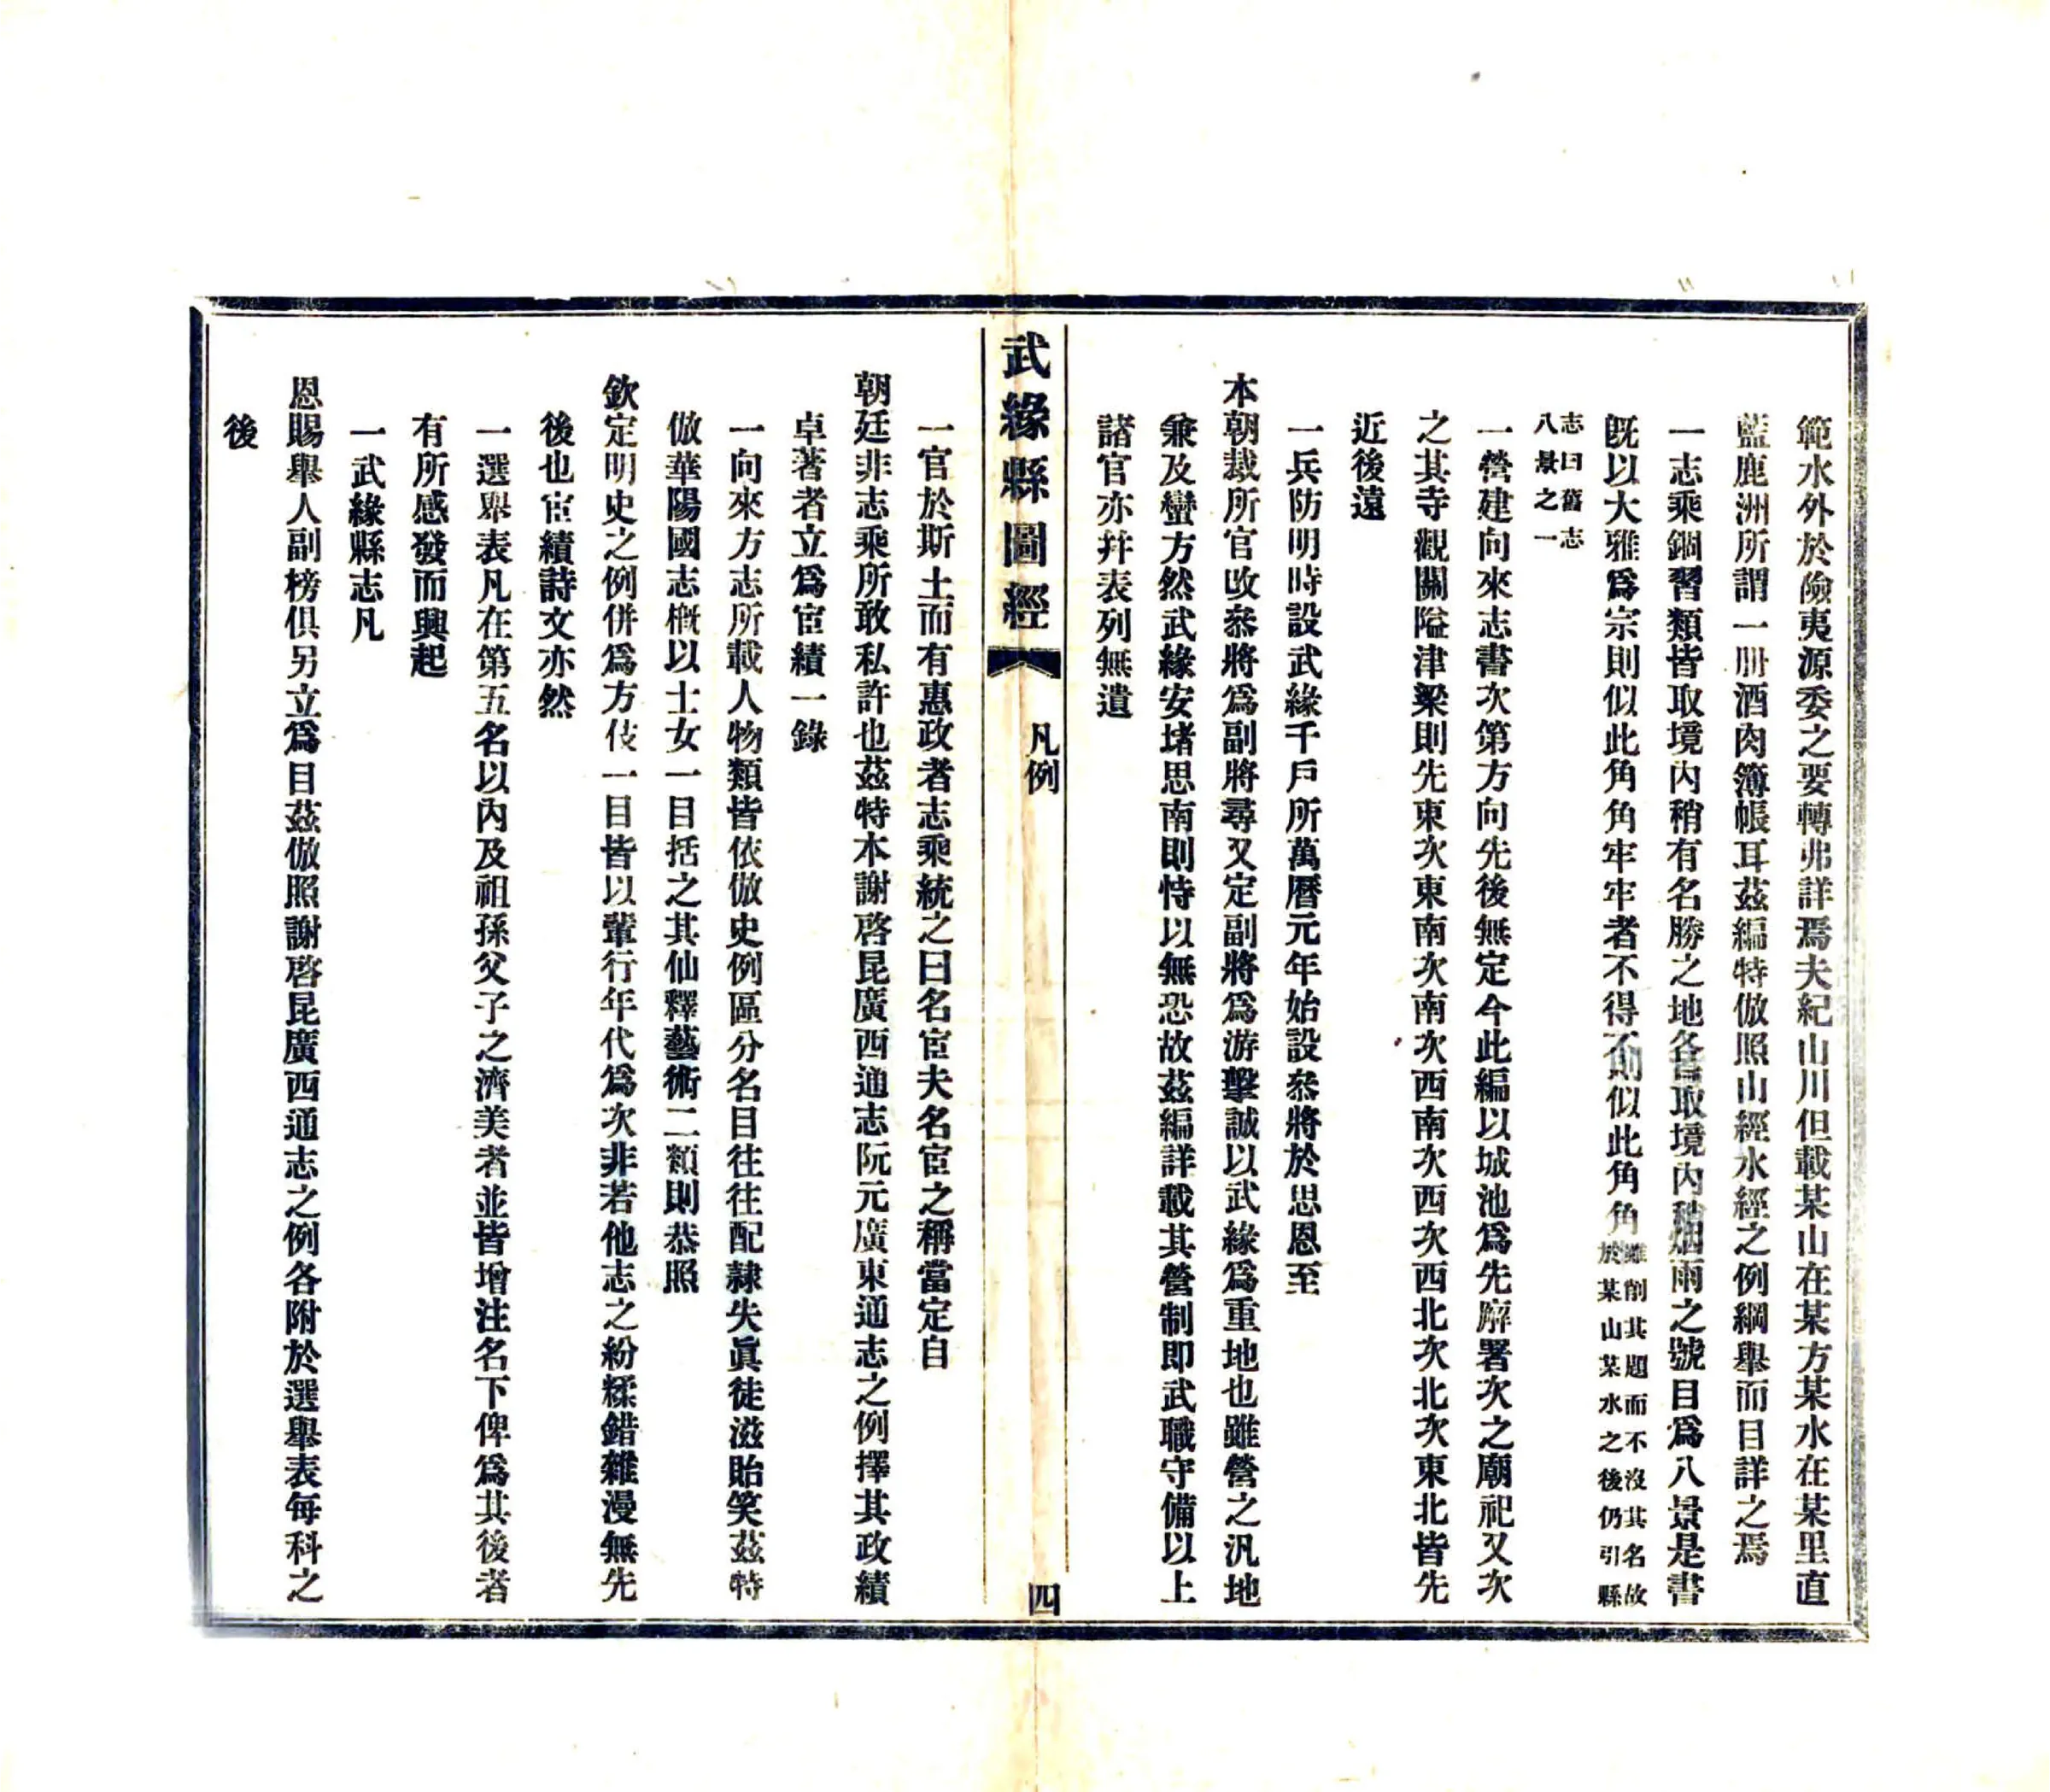 範水外於險夷源委之要轉弗詳焉夫紀山川但載某山在某方某水在某里直
藍鹿洲所謂一册酒肉簿帳耳茲編特倣照山經水經之例綱舉而目詳之焉
一志乘錮習類皆取境內稍有名勝之地各取境內烟雨之號目爲八景是書
旣以大雅爲宗則似此角角牢牢者不得不似此角角雖削其題而不沒其名故
於某山某水之後仍引縣
志曰舊志
八景之一
一營建向來志書次第方向先後無定今此編以城池爲先廨署次之廟祀又次
之其寺觀關隘津梁則先東次東南次南次西南次西次西北次北次東北皆先
近後遠
一兵防明時設武緣千戶所萬曆元年始設叅將於思恩至
本朝裁所官改叅將爲副將尋又定副將爲游擊誠以武緣爲重地也雖營之汎地
兼及蠻方然武緣安堵思南則恃以無恐故茲編詳載其營制即武職守備以上
諸官亦幷表列無遺
武緣縣圖經
凡例
四
一官於斯土而有惠政者志乘統之曰名宦夫名宦之稱當定自
朝廷非志乘所敢私許也茲特本謝啓昆廣西通志阮元廣東通志之例擇其政績
卓著者立爲宦績一錄
一向來方志所載人物類皆依倣史例區分名目往往配隷失眞徒滋貽笑茲特
倣華陽國志槪以士女一目括之其仙釋藝術二類則恭照
欽定明史之例併爲方伎一目皆以輩行年代爲次非若他志之紛糅錯雜漫無先
後也宦績詩文亦然
一選舉表凡在第五名以內及祖孫父子之濟美者並皆增注名下俾爲其後者
有所感發而興起
一武緣縣志凡
恩賜舉人副榜俱另立爲目茲倣照謝啓昆廣西通志之例各附於選舉表每科之
後